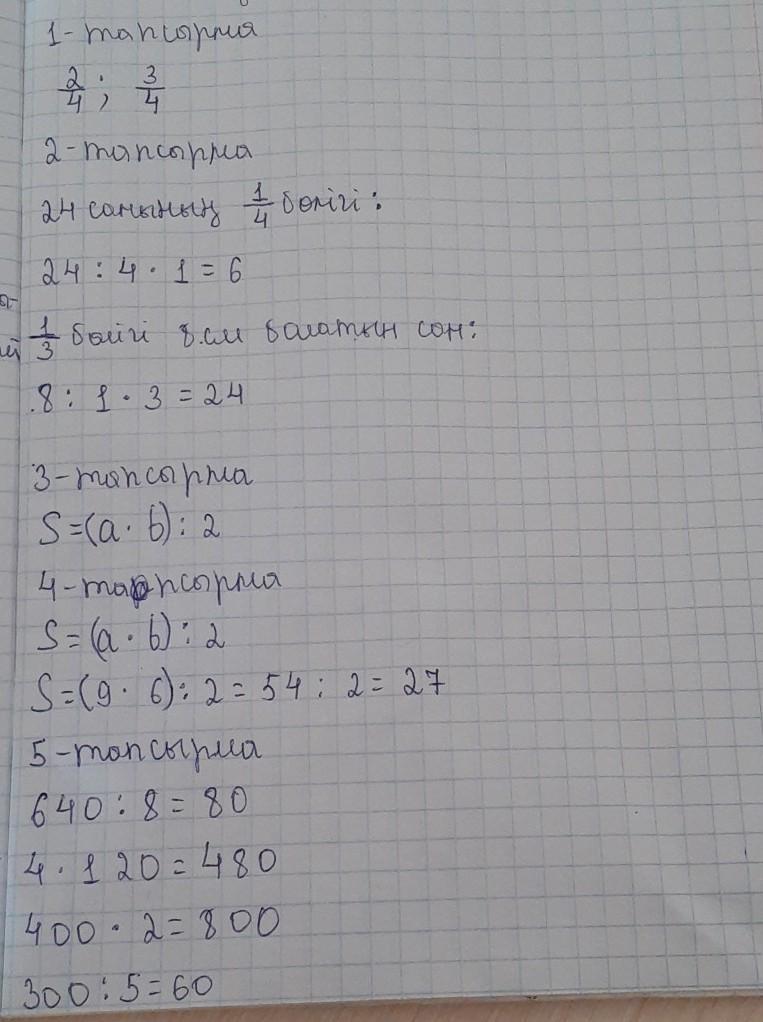 1-тапсырма
2/4; 3/4
2-тапсырма
24 санының 1/4 бөлігі:
24 : 4 · 1 = 6
1/3 бөлігі 8 см болатын сан:
8 : 1 · 3 = 24
3-тапсырма
S=(a · b) : 2
4-тапсырма
S=(a · b) : 2
S=(9 · 6) : 2 = 54 : 2 = 27
5-тапсырма
640 : 8 = 80
4 · 120 = 480
400 · 2 = 800
300 : 5 = 60